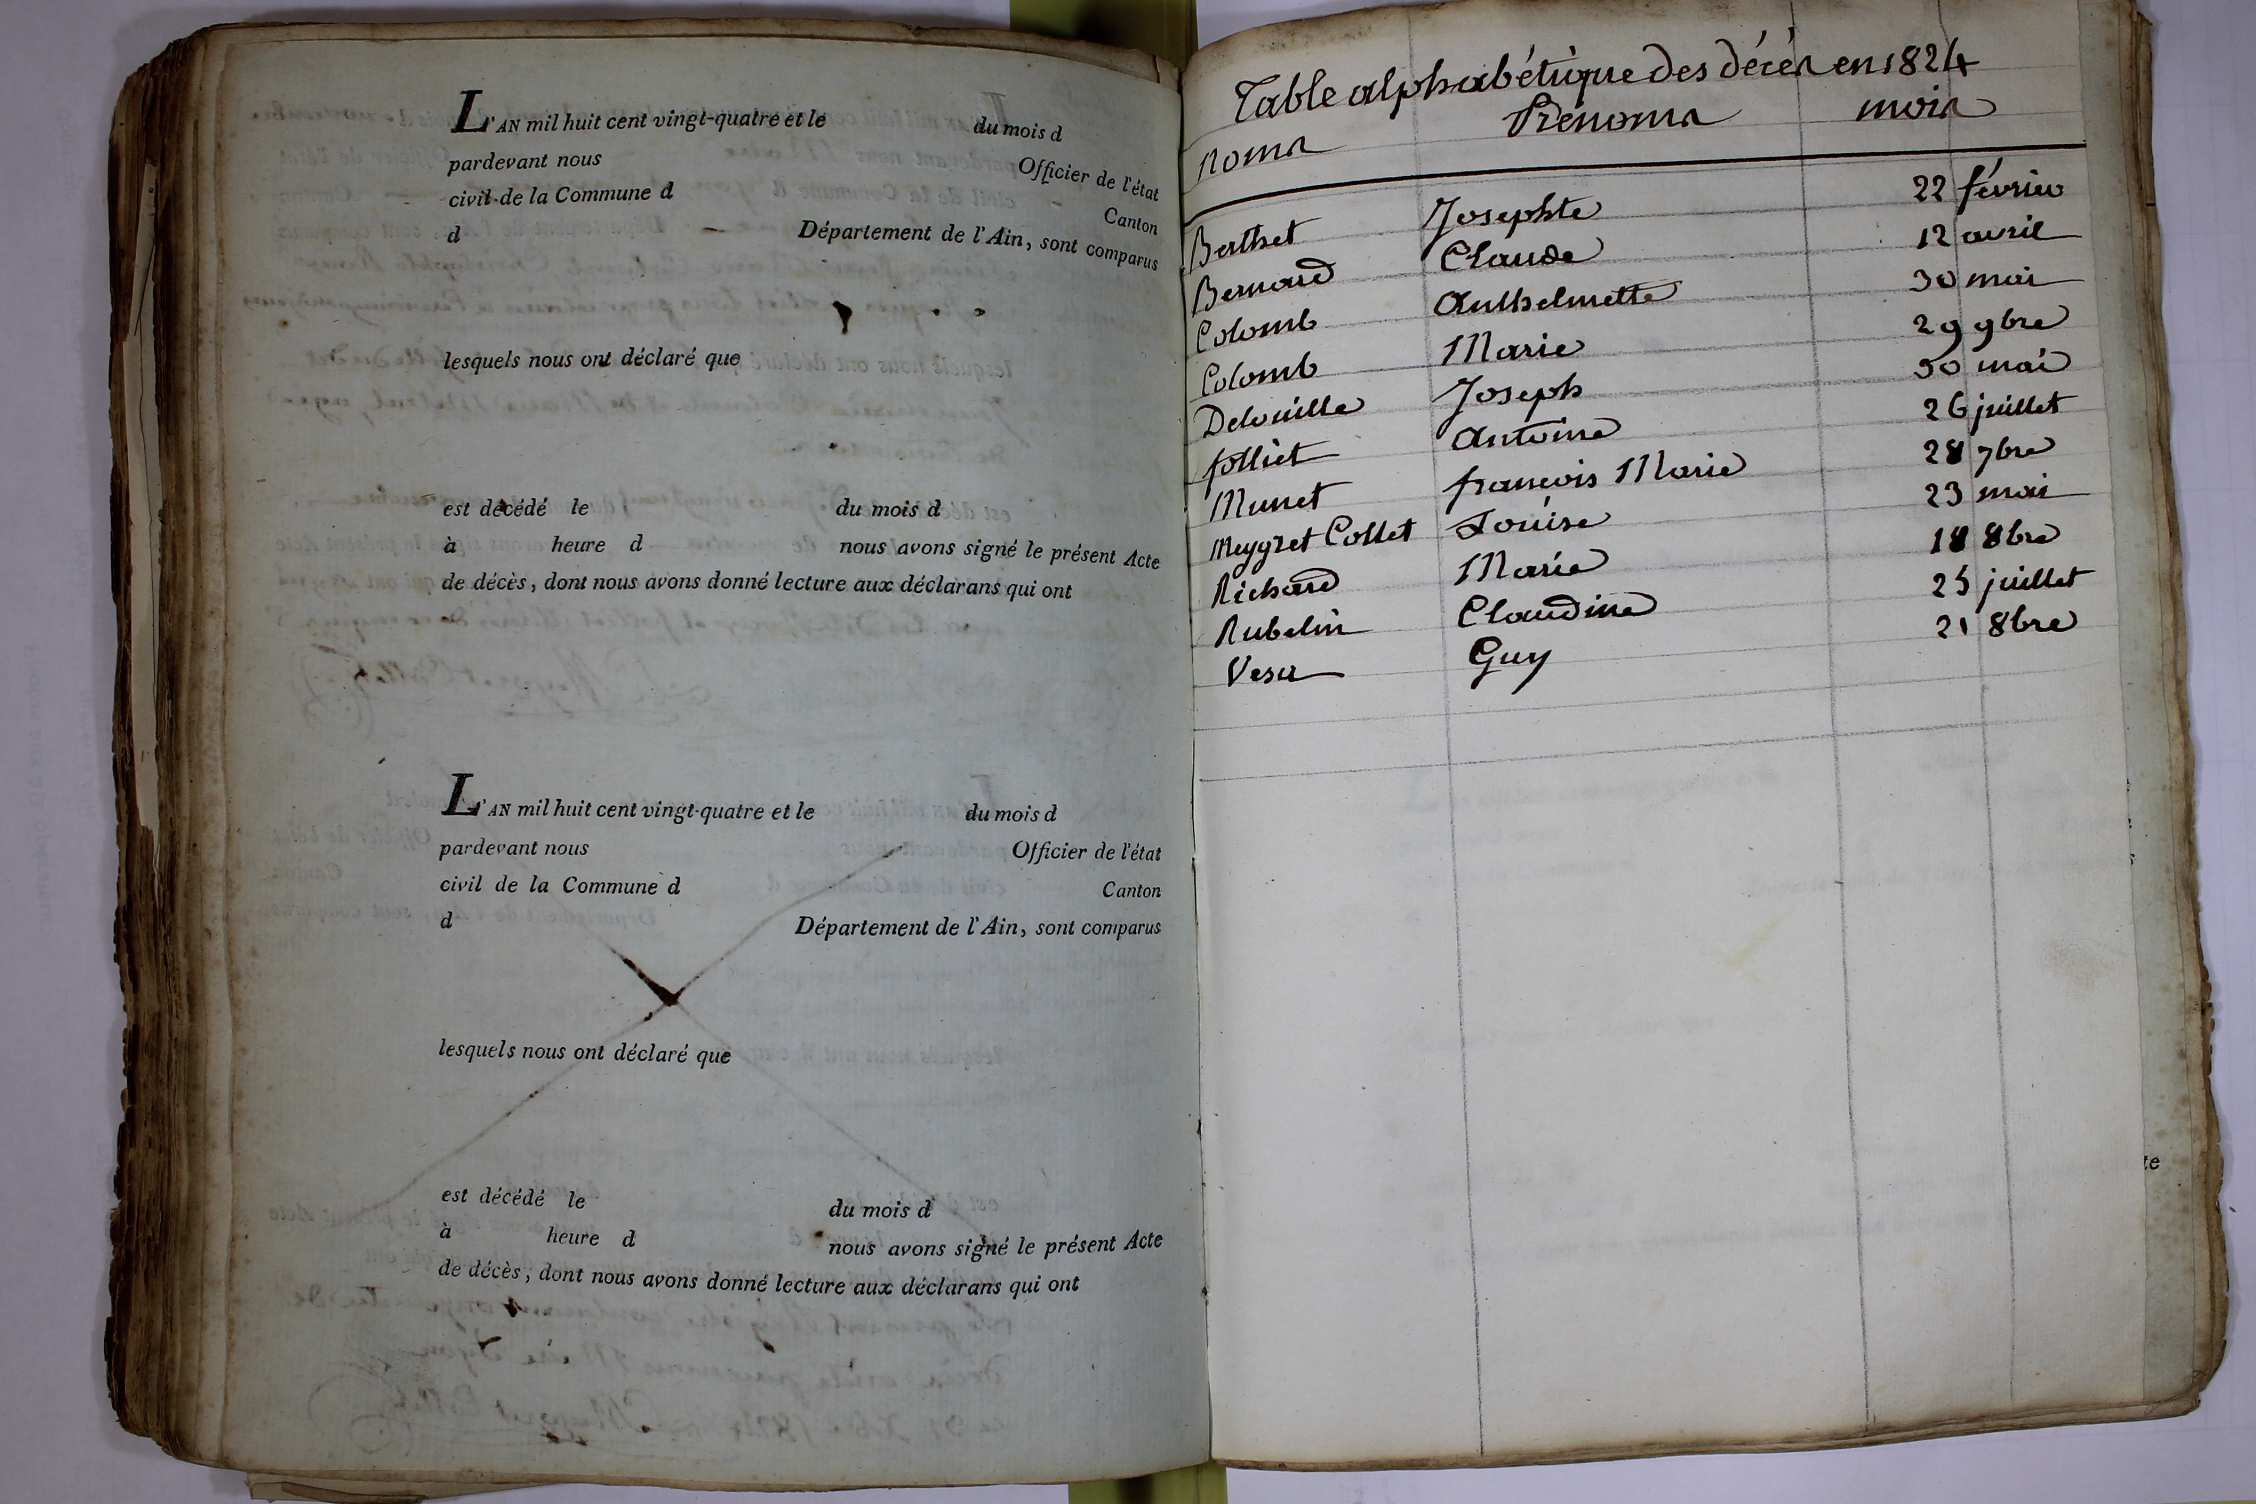 L'AN mil huit cent vingt-quatre et le du mois d
pardevant nous Officier de l'état
civil de la Commune d Canton
d Département de l'Ain, sont comparus
lesquels nous ont déclaré que
est décédé le du mois d
à heure d nous avons signé le présent Acte
de décès, dont nous avons donné lecture aux déclarans qui ont
L'AN mil huit cent vingt-quatre et le du mois d
pardevant nous Officier de l'état
civil de la Commune d Canton
d Département de l'Ain, sont comparus
lesquels nous ont déclaré que
est décédé le du mois d
à heure d nous avons signé le présent Acte
de décès, dont nous avons donné lecture aux déclarans qui ont
Table alphabétique des décés en 1824
noms Prenoms mois
Berthet Josephte 22 février
Bernard Claude 12 avril
Colomb Anthelmette 30 mai
Colomb Marie 29 9bre
Delouille Joseph 30 mai
folliet Antoine 26 juillet
Munet francois Marie 28 7bre
Meygret Collet Louise 23 mai
Richard Marie 18 8bre
Rubelin Claudine 25 juillet
Vesu Guy 21 8bre
te